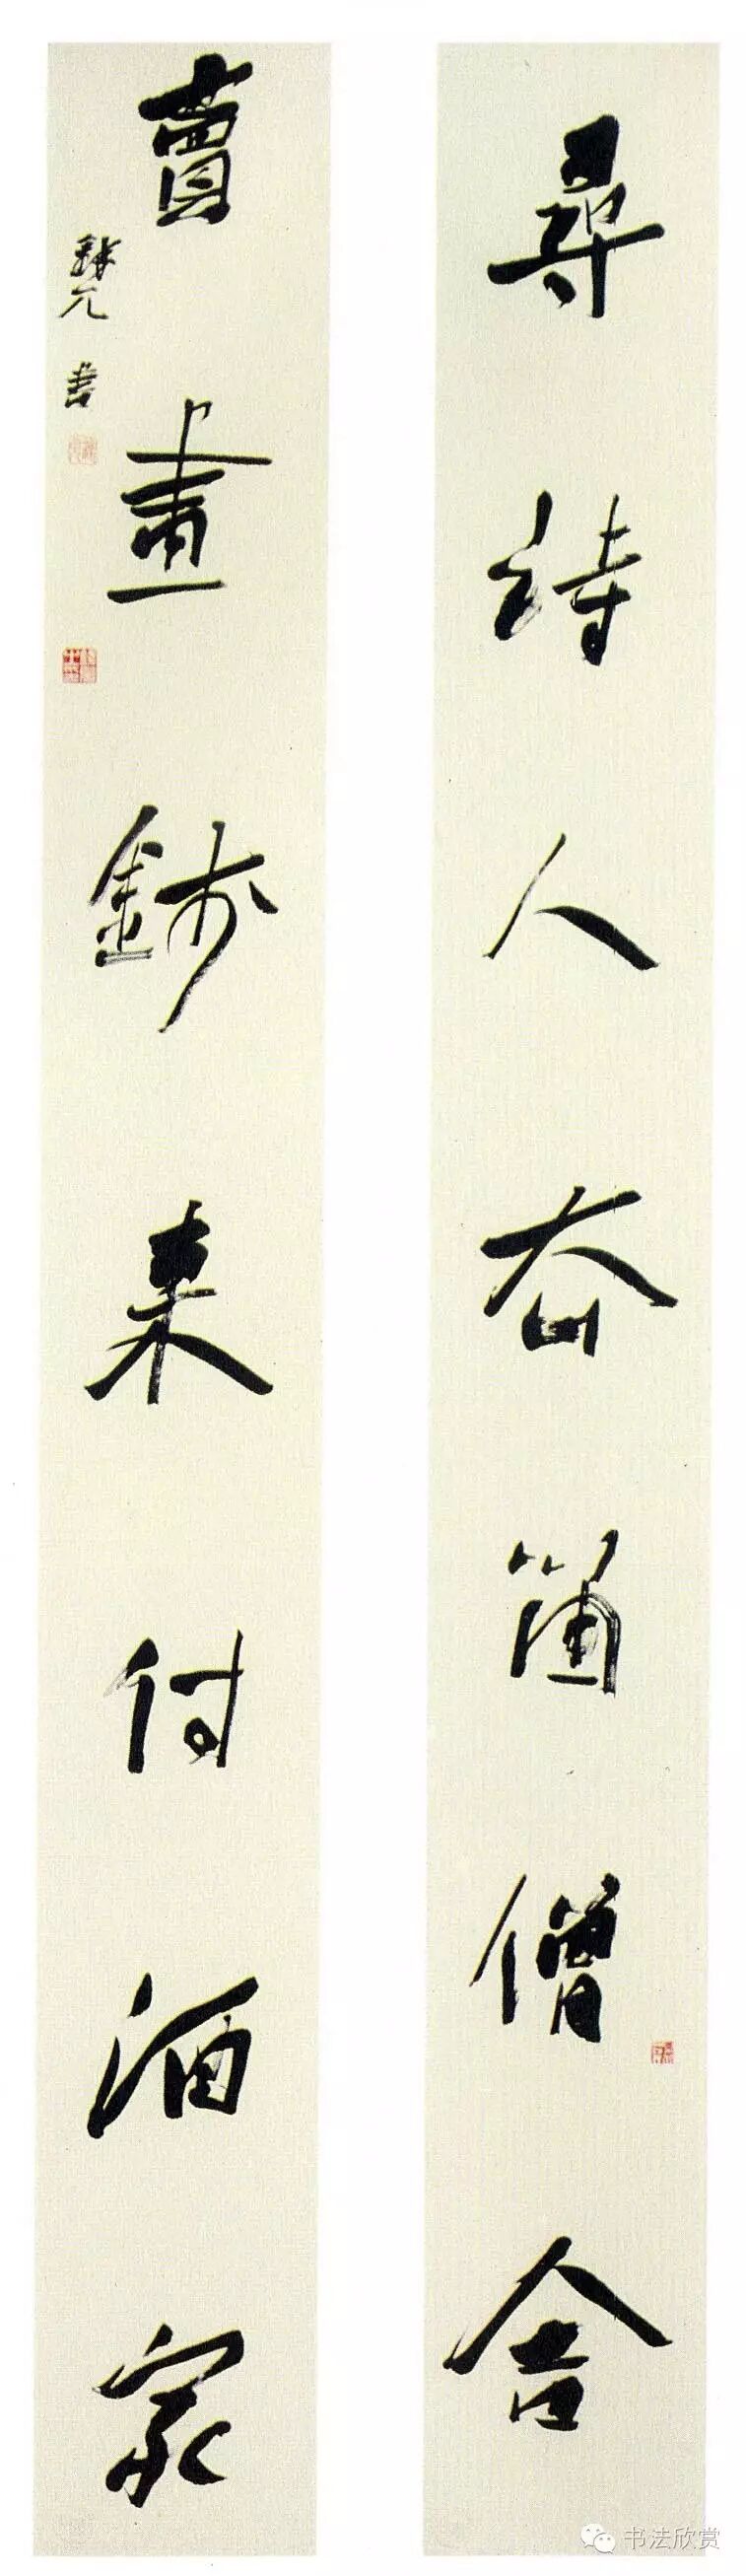 尋詩人去留僧舍
賣畫錢來付酒家
元書
书法欣赏